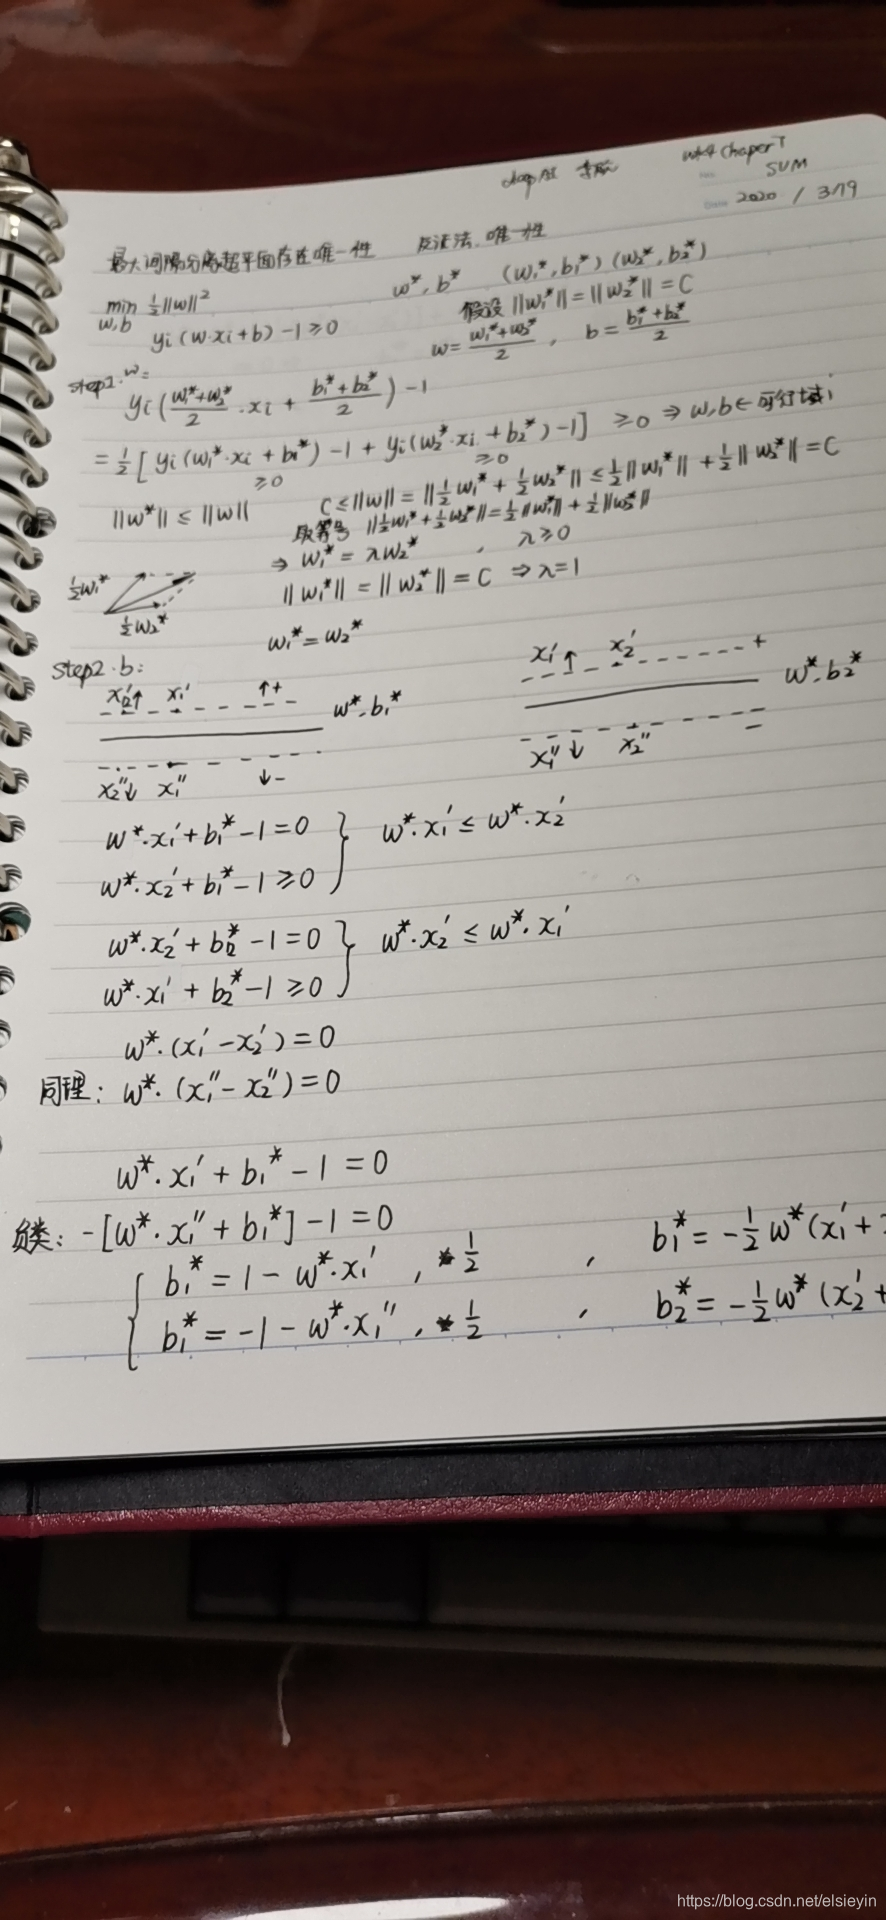 wk4 Chaper7
SVM
2020 / 3/19
最大间隔分离超平面存在唯一性 反证法 唯一性
min 1/2||w||²
w,b
yi(w·xi+b)-1≥0
w*, b* (w1*, b1*) (w2*, b2*)
假设 ||w1*|| = ||w2*|| = C
w = (w1*+w2*)/2 , b = (b1*+b2*)/2
step1. w:
yi((w1*+w2*)/2 ·xi + (b1*+b2*)/2) -1
= 1/2 [yi(w1*·xi+b1*)-1 + yi(w2*·xi+b2*)-1] ≥0 ⇒ w,b ∈ 可行域
≥0 ≥0
||w*|| ≤ ||w|| C ≤ ||w|| = ||1/2 w1* + 1/2 w2*|| ≤ 1/2||w1*|| + 1/2||w2*|| = C
取等号 ||1/2 w1* + 1/2 w2*|| = 1/2||w1*|| + 1/2||w2*||
⇒ w1* = λw2* , λ≥0
||w1*|| = ||w2*|| = C ⇒ λ=1
1/2 w1*
1/2 w2*
w1* = w2*
Step2. b:
x2'↑ x1' ↑+
w*. b1*
x2''↓ x1'' ↓-
x1'↑ x2' +
w*. b2*
x1''↓ x2'' -
w*·x1' + b1* - 1 = 0
w*·x2' + b1* - 1 ≥ 0 } w*·x1' ≤ w*·x2'
w*·x2' + b2* - 1 = 0
w*·x1' + b2* - 1 ≥ 0 } w*·x2' ≤ w*·x1'
w*·(x1' - x2') = 0
同理: w*·(x1'' - x2'') = 0
w*·x1' + b1* - 1 = 0
负类: -[w*·x1'' + b1*] - 1 = 0
{ b1* = 1 - w*·x1' , * 1/2 , b1* = -1/2 w*(x1' +
b1* = -1 - w*·x1'' , * 1/2 , b2* = -1/2 w*(x2' +
https://blog.csdn.net/elsieyin